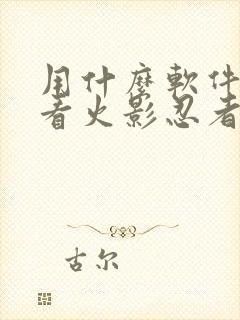 用什麼軟件
看火影忍者
古尔